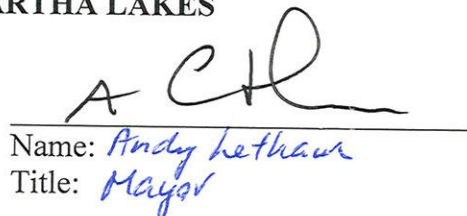 ARTHA LAKES
Name: Andy Lethawk
Title: Mayor